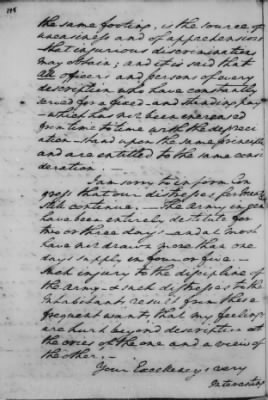 the same footing, is the source of
uneasiness and of apprehensions
that injurious discriminations
may obtain; and it is said that
all officers and persons of every
description who have constantly
served for a fixed and standing pay
which has not been encreased
from time to time with the deprecia
tion - stand upon the same principle
and are entitled to the same con
sideration. -
I am sorry to inform Con
gress that our distresses for bread
still continue. - The army in gen
have been entirely destitute for
two or three days - and at most
have not drawn more than one
days supply in four or five. -
Such injury to the discipline of
the army & such distresses to the
Inhabitants, result from these
frequent wants, that my feelings
are hurt beyond description at
the cries of the one and a view of
the other. -
Your Excellency's very
interesting